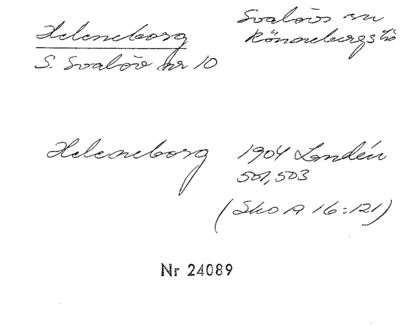 Heleneborg
S. Svalöv nr 10
Svalövs sn
Rönnebergs hd
Heleneborg 1904 Lundén
501,503
(Sko A 16:121)
Nr 24089